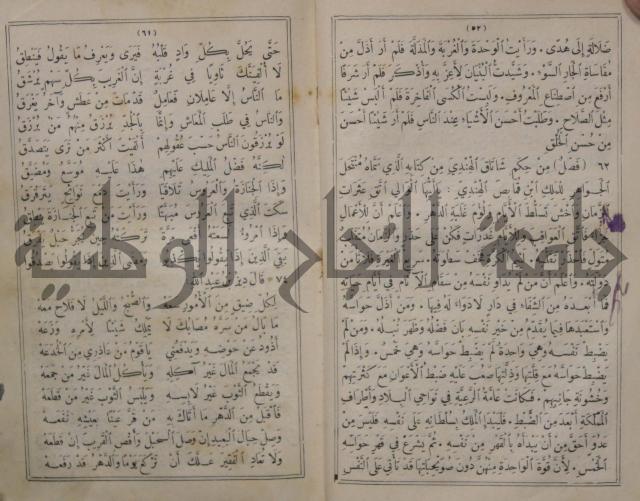 (٥٢)
ضلالة إلى هدى . ورأيت الوحدة والغربة والمذلة فلم أر أذل من
مقاساة الجار السوء . وشيدت البنيان لأعز به وأذكر فلم أر شرفا
أرفع من اصطناع المعروف . ولبست الكسى الفاخرة فلم ألبس شيئا
مثل الصلاح . وطلبت أحسن الأشياء عند الناس فلم أر شيئا أحسن
من حسن الخلق
٦٢ (فصل) من حكم شاناق الهندي من كتابه الذي سماه منتحل
الجواهر لملك ابن قمانص الهندي : يا أيها الوالي اتق عثرات
الزمان واخش تسلط الأيام ولؤم غلبة الدهر . واعلم أن للأعمال
فاتق العواقب فكن على حذر
واعلم أن من لم يداو نفسه من سقام الآثام في أيام حياته
فما أبعده من الشفاء في دار لا دواء له فيها . ومن أذل حواسه
واستعبدها فيما يقدم من خير نفسه بان فضله وظهر نبله . ومن لم
يضبط نفسه وهي واحدة لم يضبط حواسه وهي خمس . وإذا لم
يضبط حواسه مع قلتها وذلتها صعب عليه ضبط الأعوان مع كثرتهم
وخشونة جانبهم . فكانت عامة الرعية في نواحي البلاد وأطراف
المملكة أبعد من الضبط . فليبدإ الملك بسلطانه على نفسه فليس من
عدو أحق من أن يبدأه بالقهر من نفسه . ثم يشرع في قهر حواسه
الخمس . لأن قوة الواحدة منهن دون صويحباتها قد تأتي على النفس
(٦١)
حتى يحل بكل واد قلبه فيرى ويعرف ما يقول فينطق
لا ألفينك ثاويا في غربة إن الغريب بكل سهم يرشق
ما الناس إلا عاملان فعامل قد مات من عطش وآخر يغرق
والناس في طلب المعاش وإنما بالجد يرزق منهم من يرزق
لو يرزقون الناس حسب عقولهم ألفيت أكثر من ترى يتصدق
لكنه فضل المليك عليهم هذا عليه موسع ومضيق
وإذا الجنازة والعروس تلاقيا ورأيت دمع نوائح يترقرق
سكت الذي تبع العروس مبهتا ورأيت من تبع الجنازة ينطق
بقي الذين إذا يقولوا يكذبوا ومضى الذين إذا يقولوا يصدقوا
لكل ضيق من الأمور سعه والصبح والليل لا فلاح معه
ما بال من سره مصابك لا يملك شيئا لأمره وزعه
أذود عن حوضه ويدفعني يا قوم من عاذري من الخدعه
قد يجمع المال غير آكله ويأكل المال غير من جمعه
ويقطع الثوب غير لابسه ويلبس الثوب غير من قطعه
فاقبل من الدهر ما أتاك به من قر عينا بعيشه نفعه
وصل حبال البعيد إن وصل الحبل وأقص القريب إن قطعه
ولا تعاد الفقير علك أن تركع يوما والدهر قد رفعه
جامعة النجاح الوطنية